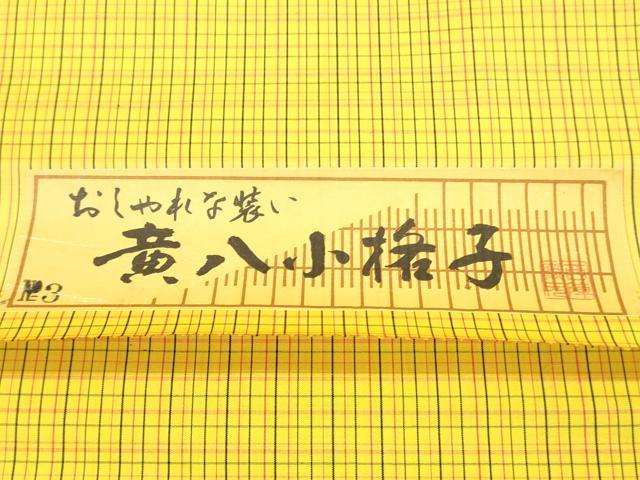 おしゃれな装い
黄八小格子